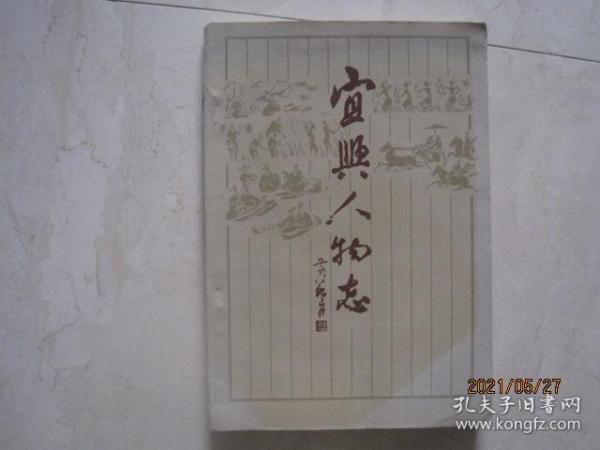 宜興人物志
2021/05/27
孔夫子旧書网
www.kongfz.com